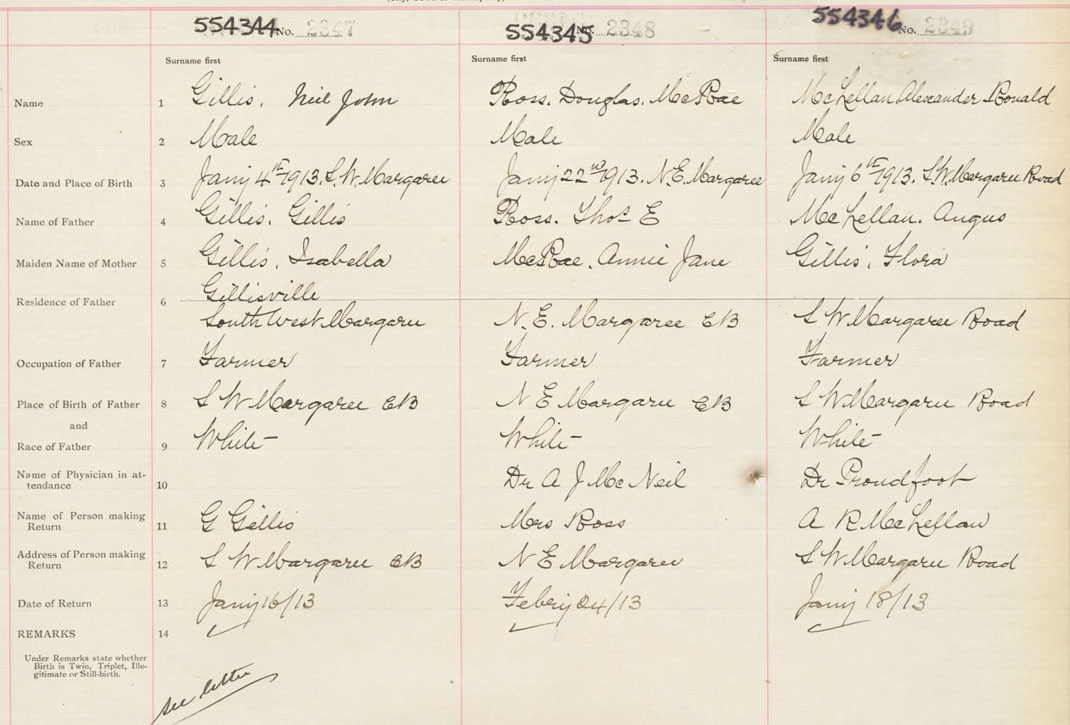 554344 No. 2347 554345 No. 2348 554346 No. 2349
Surname first Surname first Surname first
Name 1 Gillis. Neil John Ross. Douglas. McRae McLellan Alexander Ronald
Sex 2 Male Male Male
Date and Place of Birth 3 Jany 4th 1913. S.W. Margaree Jany 22nd 1913. N.E. Margaree Jany 6th 1913. S.W. Margaree Road
Name of Father 4 Gillis. Gillis Ross. Thos E McLellan. Angus
Maiden Name of Mother 5 Gillis. Isabella McRae. Annie Jane Gillis. Flora
Gillisville
Residence of Father 6 South West Margaree N. E. Margaree CB S W Margaree Road
Occupation of Father 7 Farmer Farmer Farmer
Place of Birth of Father 8 S W Margaree CB N E Margaree CB S W Margaree Road
and
Race of Father 9 White White White
Name of Physician in at-
tendance 10 Dr A J McNeil Dr Proudfoot
Name of Person making
Return 11 G Gillis Mrs Ross A R McLellan
Address of Person making
Return 12 S W Margaree CB N E Margaree S W Margaree Road
Date of Return 13 Jany 16/13 Febry 24/13 Jany 18/13
REMARKS 14
Under Remarks state whether
Birth is Twin, Triplet, Ille-
gitimate or Still-birth.
see letter